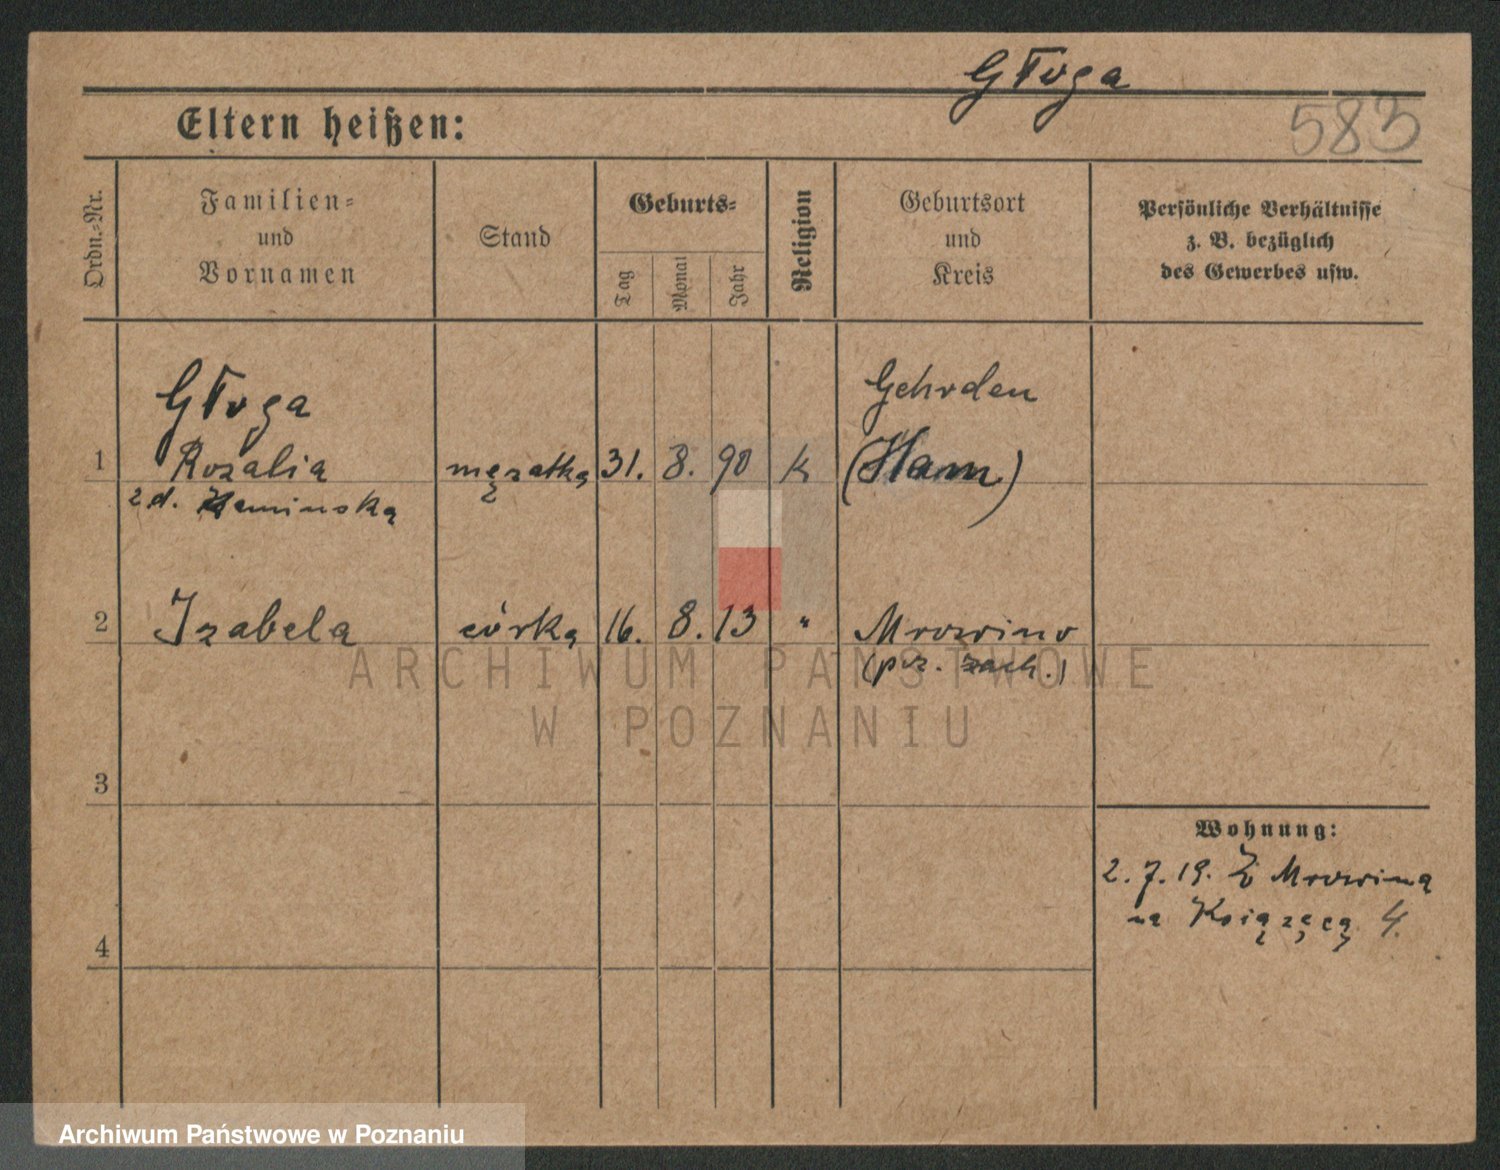 Głoga
583
Eltern heißen:
Ordn.-Nr.
Familien-
und
Vornamen
Stand
Geburts-
Tag
Monat
Jahr
Religion
Geburtsort
und
Kreis
Persönliche Verhältnisse
z. B. bezüglich
des Gewerbes usw.
Głoga Gehrden
1 Rozalia mężatka 31. 8. 90 k (Hann.)
z d.
2 Izabela córka 16. 8. 13 " Mrowino
(poz. zach.)
ARCHIWUM PAŃSTWOWE
W POZNANIU
3
Wohnung:
2. 7. 19. Z Mrowina
na Książęcą 4.
4
Archiwum Państwowe w Poznaniu